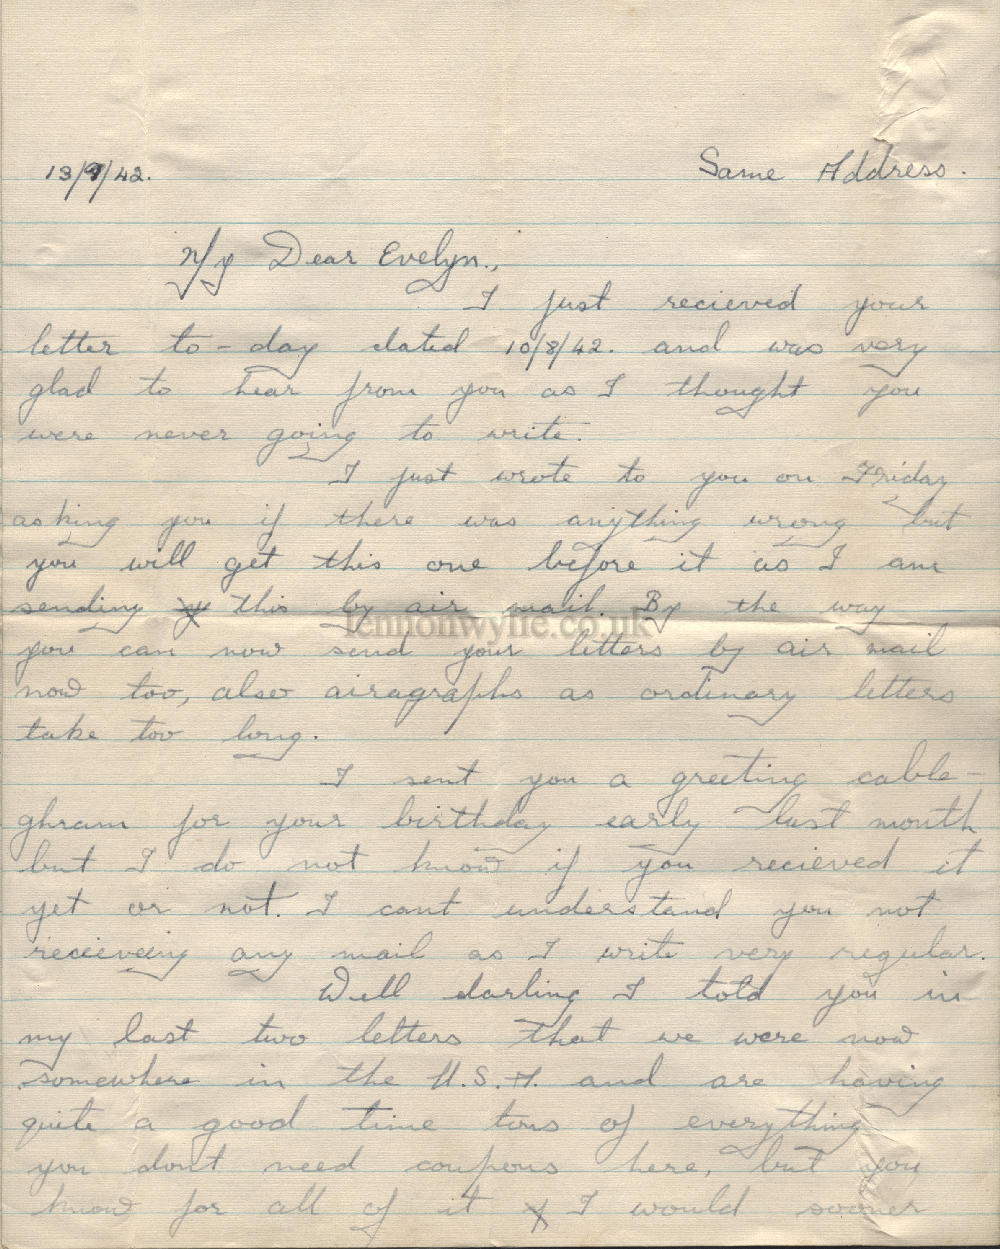 13/9/42.
Same Address.
My Dear Evelyn.,
I just recieved your
letter to-day dated 10/8/42. and was very
glad to hear from you as I thought you
were never going to write.
I just wrote to you on Friday
asking you if there was anything wrong but
you will get this one before it as I am
sending this by air mail. By the way
lennonwylie.co.uk
you can now send your letters by air mail
now too, also airagraphs as ordinary letters
take too long.
I sent you a greeting cable-
ghram for your birthday early last month
but I do not know if you recieved it
yet or not. I cant understand you not
recieveing any mail as I write very regular.
Well darling I told you in
my last two letters that we were now
somewhere in the U.S.A. and are having
quite a good time tons of everything
you dont need coupons here, but you
know for all of it I would sooner